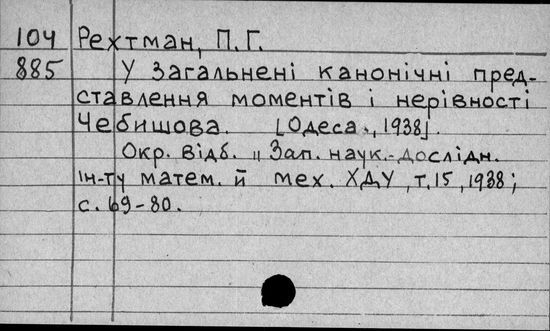 104 Рехтман, П.Г.
885 У загальнені канонічні пред-
ставлення моментів і нерівності
Чебишова. [Одеса, 1938].
Окр. відб. „Зап. наук.-дослідн.
Ін-ту матем. й мех. ХДУ, т.15, 1938;
с. 69-80.